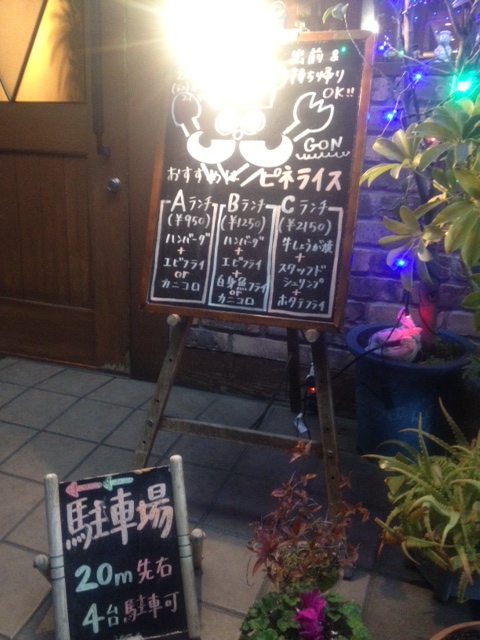 出前&
持ち帰り
OK!!
GON
おすすめは ピネライス
Aランチ
(¥950)
ハンバーグ
+
エビフライ
or
カニコロ
Bランチ
(¥1250)
ハンバーグ
+
エビフライ
+
白身魚フライ
or
カニコロ
Cランチ
(¥2150)
牛しょうが焼
+
スタッフド
シュリンプ
+
ホタテフライ
駐車場
20m先右
4台駐車可